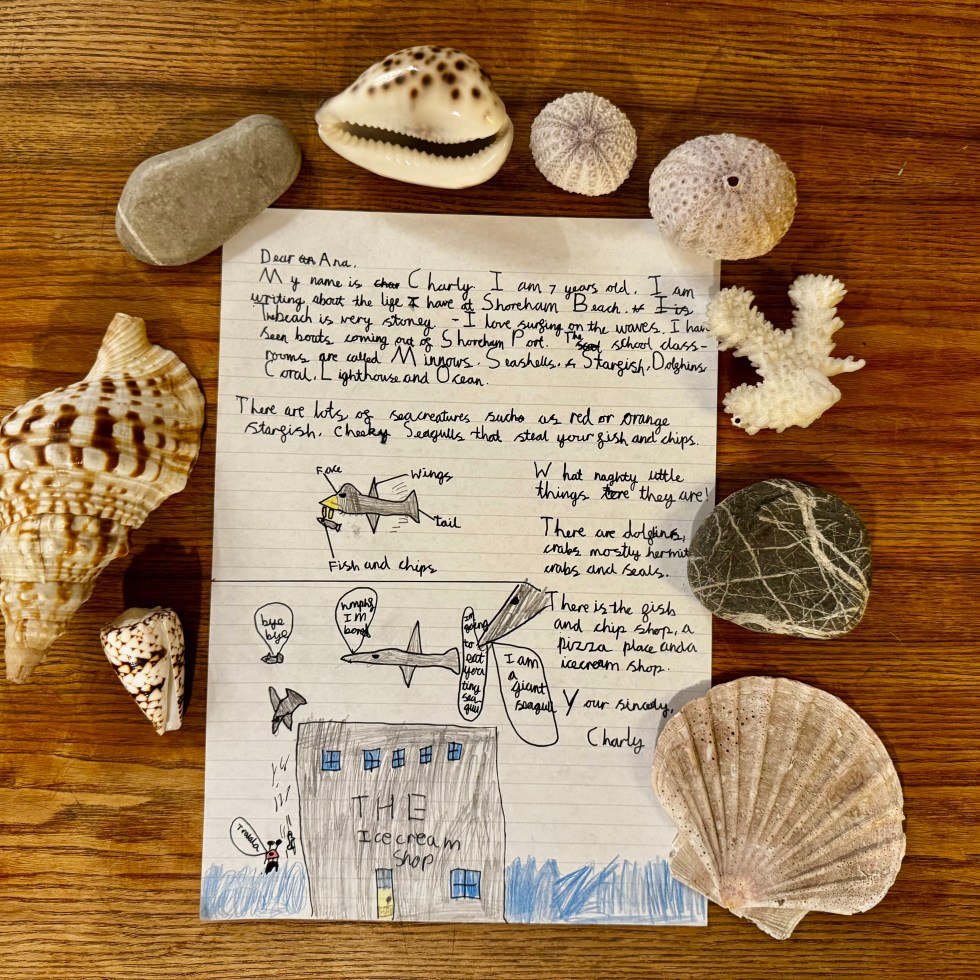 Dear Ana.
My name is Charly. I am 7 years old. I am
writing about the life I have at Shoreham Beach. I is
The beach is very stoney - I love surfing on the waves. I have
seen boats coming out of Shoreham Port. The school class-
rooms are called Minnows, Seashells, & Starfish, Dolphins,
Coral, Lighthouse and Ocean.
There are lots of seacreatures such as red or orange
starfish, cheeky Seagulls that steal your fish and chips.
Face
Wings
tail
Fish and chips
What naghty little
things they are!
There are dolfins,
crabs mostly hermit
crabs and seals.
There is the fish
and chip shop, a
pizza place and a
icecream shop.
Your sincerly,
Charly
bye
bye
I M
bord
im
going
to
eat
you
tiny
sea
gull
I am
a
giant
seagull
THE
Icecream
Shop